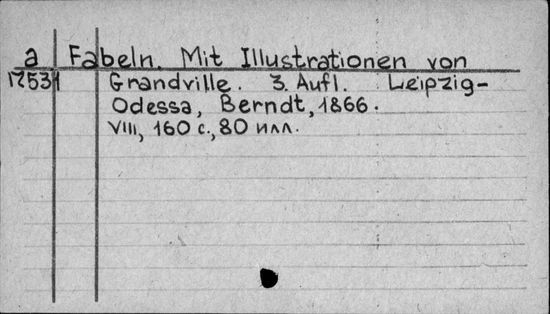 a Fabeln. Mit Illustrationen von
17531 Grandville. 3. Aufl. Leipzig-
Odessa, Berndt, 1866.
VIII, 160 с., 80 илл.